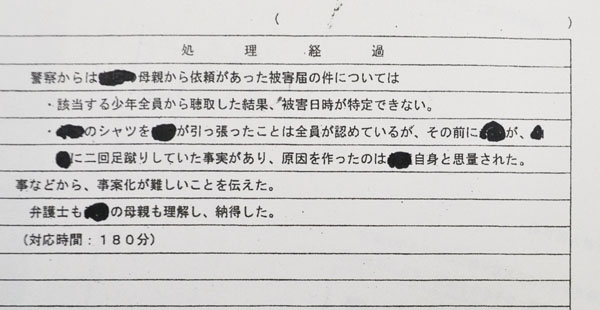 ( )
処理経過
警察からは母親から依頼があった被害届の件については
・該当する少年全員から聴取した結果、被害日時が特定できない。
・のシャツをが引っ張ったことは全員が認めているが、その前にが、
に二回足蹴りしていた事実があり、原因を作ったのは自身と思量された。
事などから、事案化が難しいことを伝えた。
弁護士もの母親も理解し、納得した。
（対応時間：１８０分）